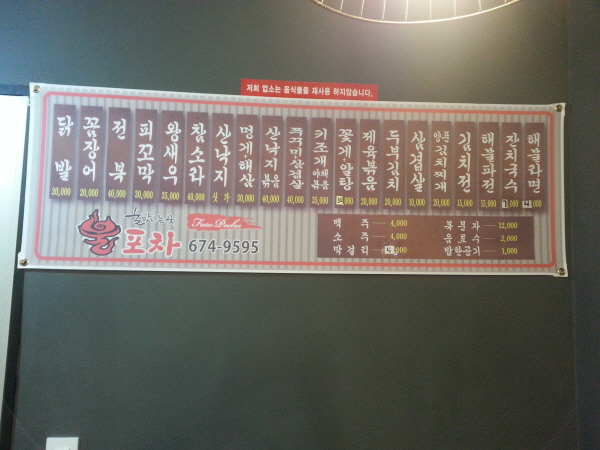 저희 업소는 음식물을 재사용 하지않습니다.
닭발 20,000
꼼장어 20,000
전복 40,000
피꼬막 30,000
왕새우 35,000
참소라 40,000
산낙지 싯가
멍게·해삼 30,000
산낙지볶음 40,000
쭈꾸미삼겹살 40,000
키조개야채볶음 35,000
꽃게·알탕
제육볶음 20,000
두부김치 20,000
삼겹살
김치찌개
김치전 15,000
해물파전 15,000
잔치국수
해물라면
불포차
674-9595
맥주 4,000
소주 4,000
막걸리
복분자 12,000
음료수 2,000
밥한공기 1,000